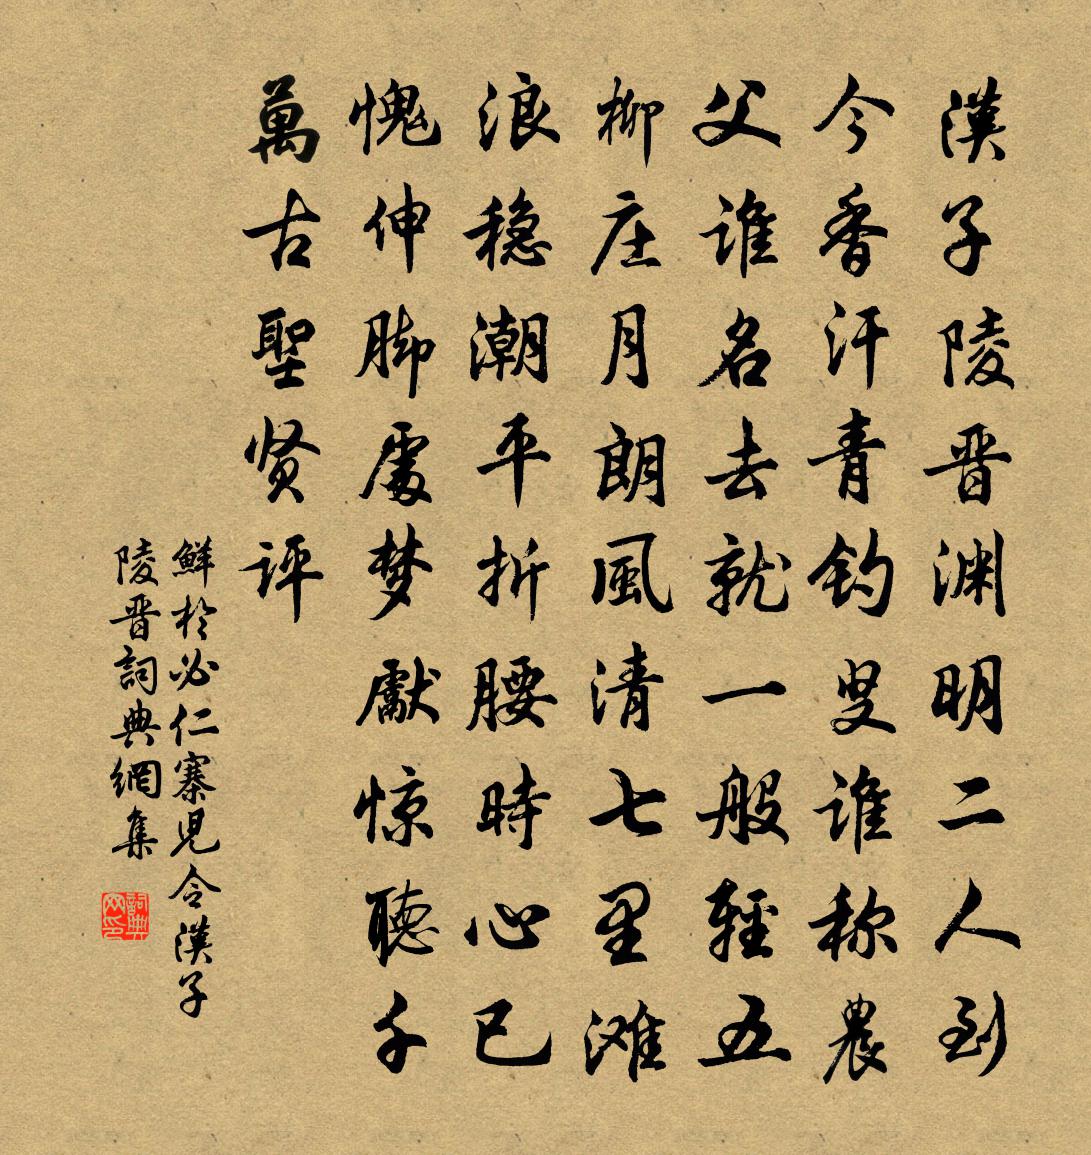 漢子陵晋渊明二人到
今香汗青钓叟谁称農
父谁名去就一般輕五
柳庄月朗風清七里滩
浪稳潮平折腰時心已
愧伸脚處梦魘惊聽千
萬古聖贤评
鮮於必仁寨兒令漢子
陵晋詞典網集
詞典
网印